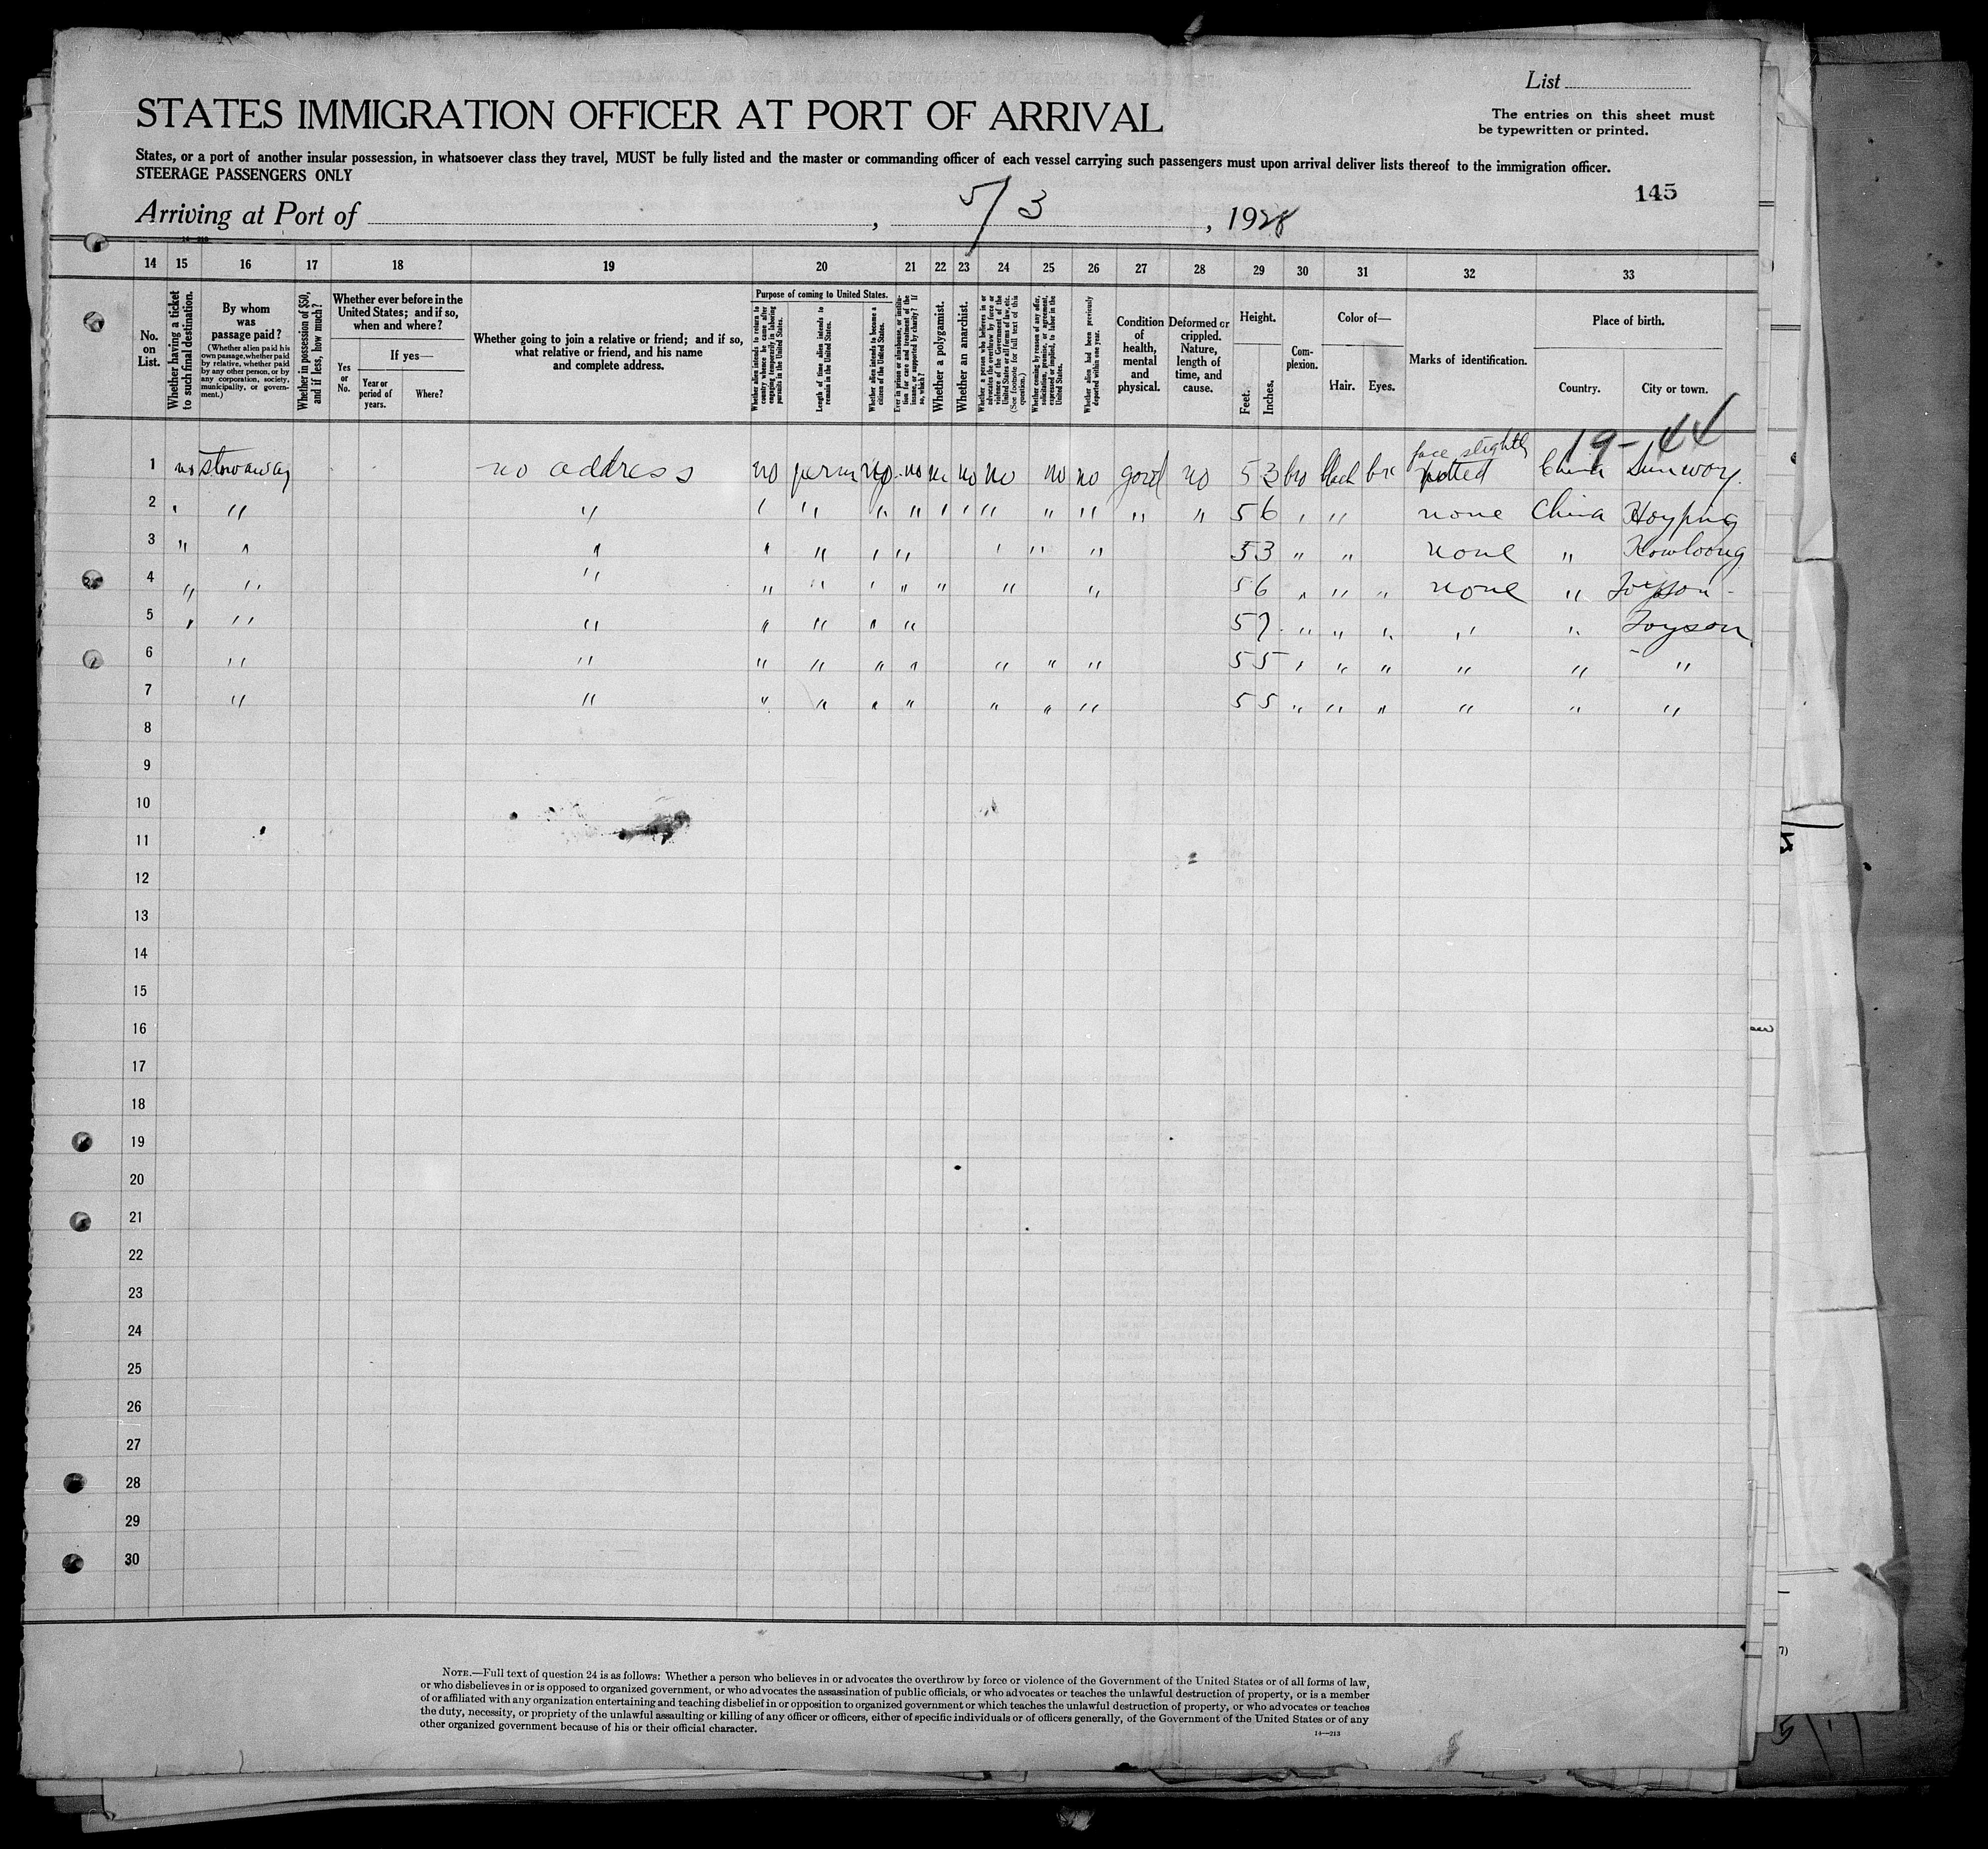 List
STATES IMMIGRATION OFFICER AT PORT OF ARRIVAL
The entries on this sheet must
be typewritten or printed.
States, or a port of another insular possession, in whatsoever class they travel, MUST be fully listed and the master or commanding officer of each vessel carrying such passengers must upon arrival deliver lists thereof to the immigration officer.
STEERAGE PASSENGERS ONLY
145
Arriving at Port of , 5/3 , 1928
14 15 16 17 18 19 20 21 22 23 24 25 26 27 28 29 30 31 32 33
No. on List.
Whether having a ticket to such final destination.
By whom was passage paid?
(Whether alien paid his own passage, whether paid by relative, whether paid by any other person, or by any corporation, society, municipality, or government.)
Whether in possession of $50, and if less, how much?
Whether ever before in the United States; and if so, when and where?
Yes or No.
If yes—
Year or period of years.
Where?
Whether going to join a relative or friend; and if so, what relative or friend, and his name and complete address.
Purpose of coming to United States.
Whether alien intends to return to country whence he came after engaging temporarily in laboring pursuits in the United States.
Length of time alien intends to remain in the United States.
Whether alien intends to become a citizen of the United States.
Ever in prison or almshouse, or institution for care and treatment of the insane, or supported by charity? If so, which?
Whether a polygamist.
Whether an anarchist.
Whether a person who believes in or advocates the overthrow by force or violence of the Government of the United States or all forms of law, etc. (See footnote for full text of this question.)
Whether coming by reason of any offer, solicitation, promise, or agreement, expressed or implied, to labor in the United States.
Whether alien had been previously deported within one year.
Condition of health, mental and physical.
Deformed or crippled. Nature, length of time, and cause.
Height.
Feet.
Inches.
Complexion.
Color of—
Hair.
Eyes.
Marks of identification.
Place of birth.
Country.
City or town.
19-44
face slightly
1 no stowaway no address no perm no no no no no no no good no 5 3 bro black bro potted China
2 " " " " " " " " " " " " " " " 5 6 " " none China Hoyping
3 " " " " " " " " " " 5 3 " " none " Kowloong
4 " " " " " " " " " " 5 6 " " " none " Toysson
5 " " " " " " " 5 7 " " " " " Toyson
6 " " " " " " " " " 5 5 " " " " " "
7 " " " " " " " " " 5 5 " " " " " "
8
9
10
11
12
13
14
15
16
17
18
19
20
21
22
23
24
25
26
27
28
29
30
NOTE.—Full text of question 24 is as follows: Whether a person who believes in or advocates the overthrow by force or violence of the Government of the United States or of all forms of law,
or who disbelieves in or is opposed to organized government, or who advocates the assassination of public officials, or who advocates or teaches the unlawful destruction of property, or is a member
of or affiliated with any organization entertaining and teaching disbelief in or opposition to organized government or which teaches the unlawful destruction of property, or who advocates or teaches
the duty, necessity, or propriety of the unlawful assaulting or killing of any officer or officers, either of specific individuals or of officers generally, of the Government of the United States or of any
other organized government because of his or their official character.
14—213